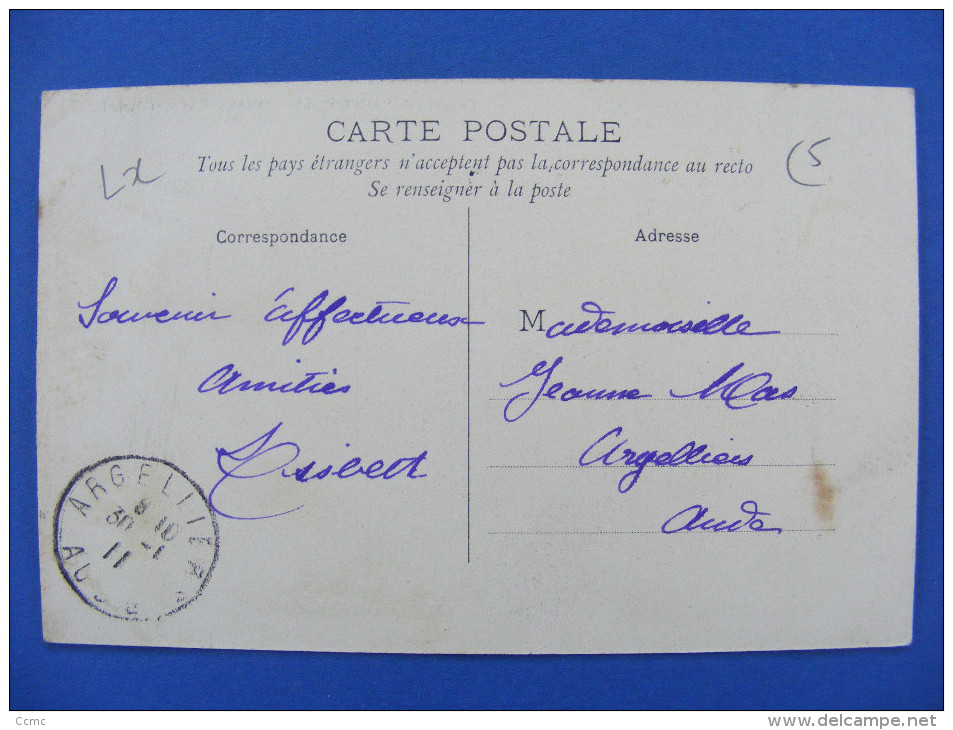 CARTE POSTALE
Tous les pays étrangers n'acceptent pas la correspondance au recto
Se renseigner à la poste
(5
Correspondance
Souvenir affectueux
Amitiés
Adresse
Mademoiselle
Jeanne Mas
Argelliers
Aude
ARGELLIERS
8 10
30 -1
11
AUDE
Ccmc
delcampe.net